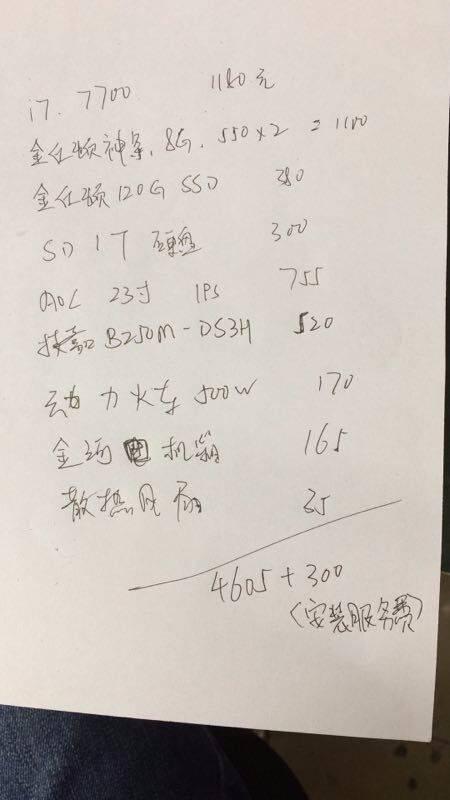 i7. 7700 1180元
金仕顿神条.8G.550×2=1100
金仕顿120G SSD 380
SD 1T 硬盘 300
AOC 23寸 IPS 755
技嘉B250M-DS3H 520
动力火车500W 170
金河田机箱 165
散热风扇 35
4605+300
(安装服务费)